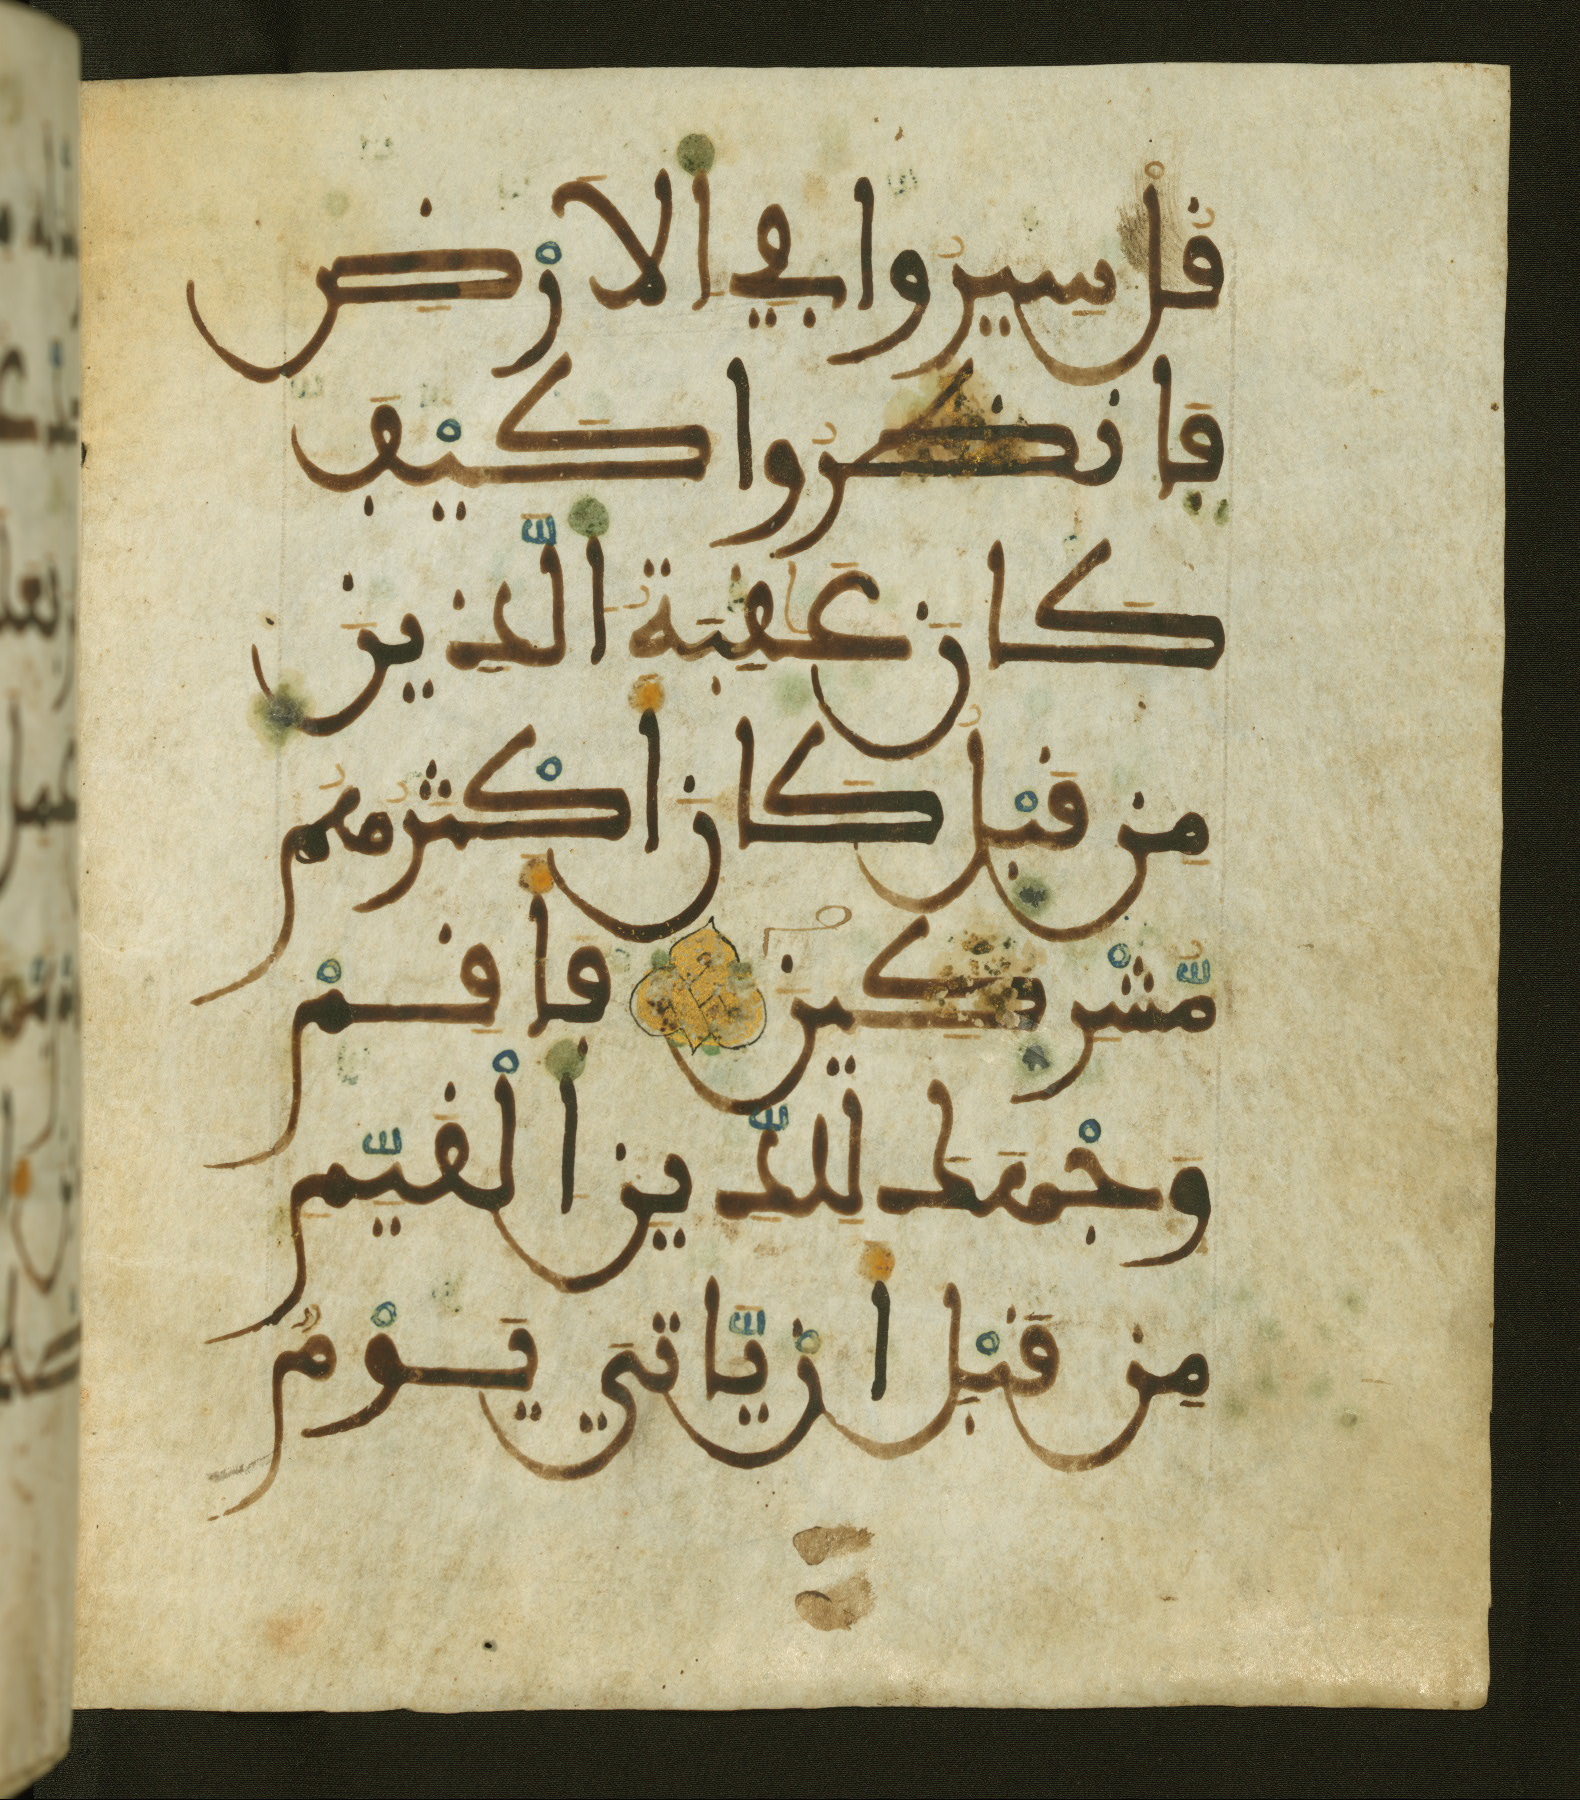 قُلْ سِيرُوا فِي الَارْضِ
فَانظُرُوا كَيْفَ
كَانَ عَٰقِبَةُ الَّذِينَ
مِن قَبْلُ كَانَ أَكْثَرُهُم
مُّشْرِكِينَ فَأَقِمْ
وَجْهَكَ لِلدِّينِ الْقَيِّمِ
مِن قَبْلِ أَنْ يَّاتِيَ يَوْمٌ